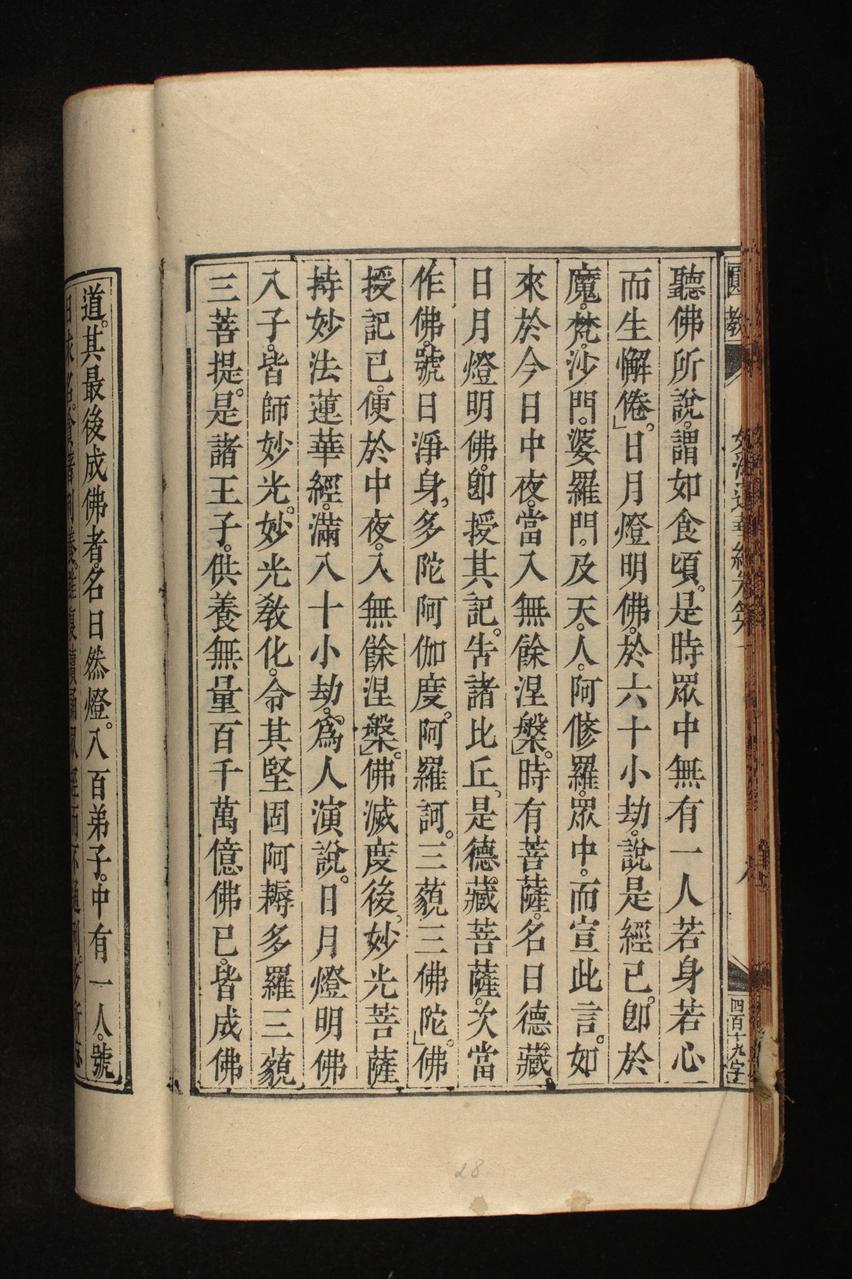 聽佛所說。謂如食頃。是時眾中無有一人若身若心
而生懈倦。」日月燈明佛。於六十小劫。說是經已。即於
魔。梵。沙門。婆羅門。及天。人。阿修羅。眾中。而宣此言。如
來於今日中夜。當入無餘涅槃。」時有菩薩。名曰德藏。
日月燈明佛。即授其記。告諸比丘。是德藏菩薩。次當
作佛。號曰淨身。多陀阿伽度。阿羅訶。三藐三佛陀。」佛
授記已。便於中夜。入無餘涅槃。」佛滅度後。妙光菩薩
持妙法蓮華經。滿八十小劫。為人演說。日月燈明佛
八子。皆師妙光。妙光教化。令其堅固阿耨多羅三藐
三菩提。是諸王子。供養無量百千萬億佛已。皆成佛
道。其最後成佛者。名曰然燈。八百弟子。中有一人。號
四百十九字
28